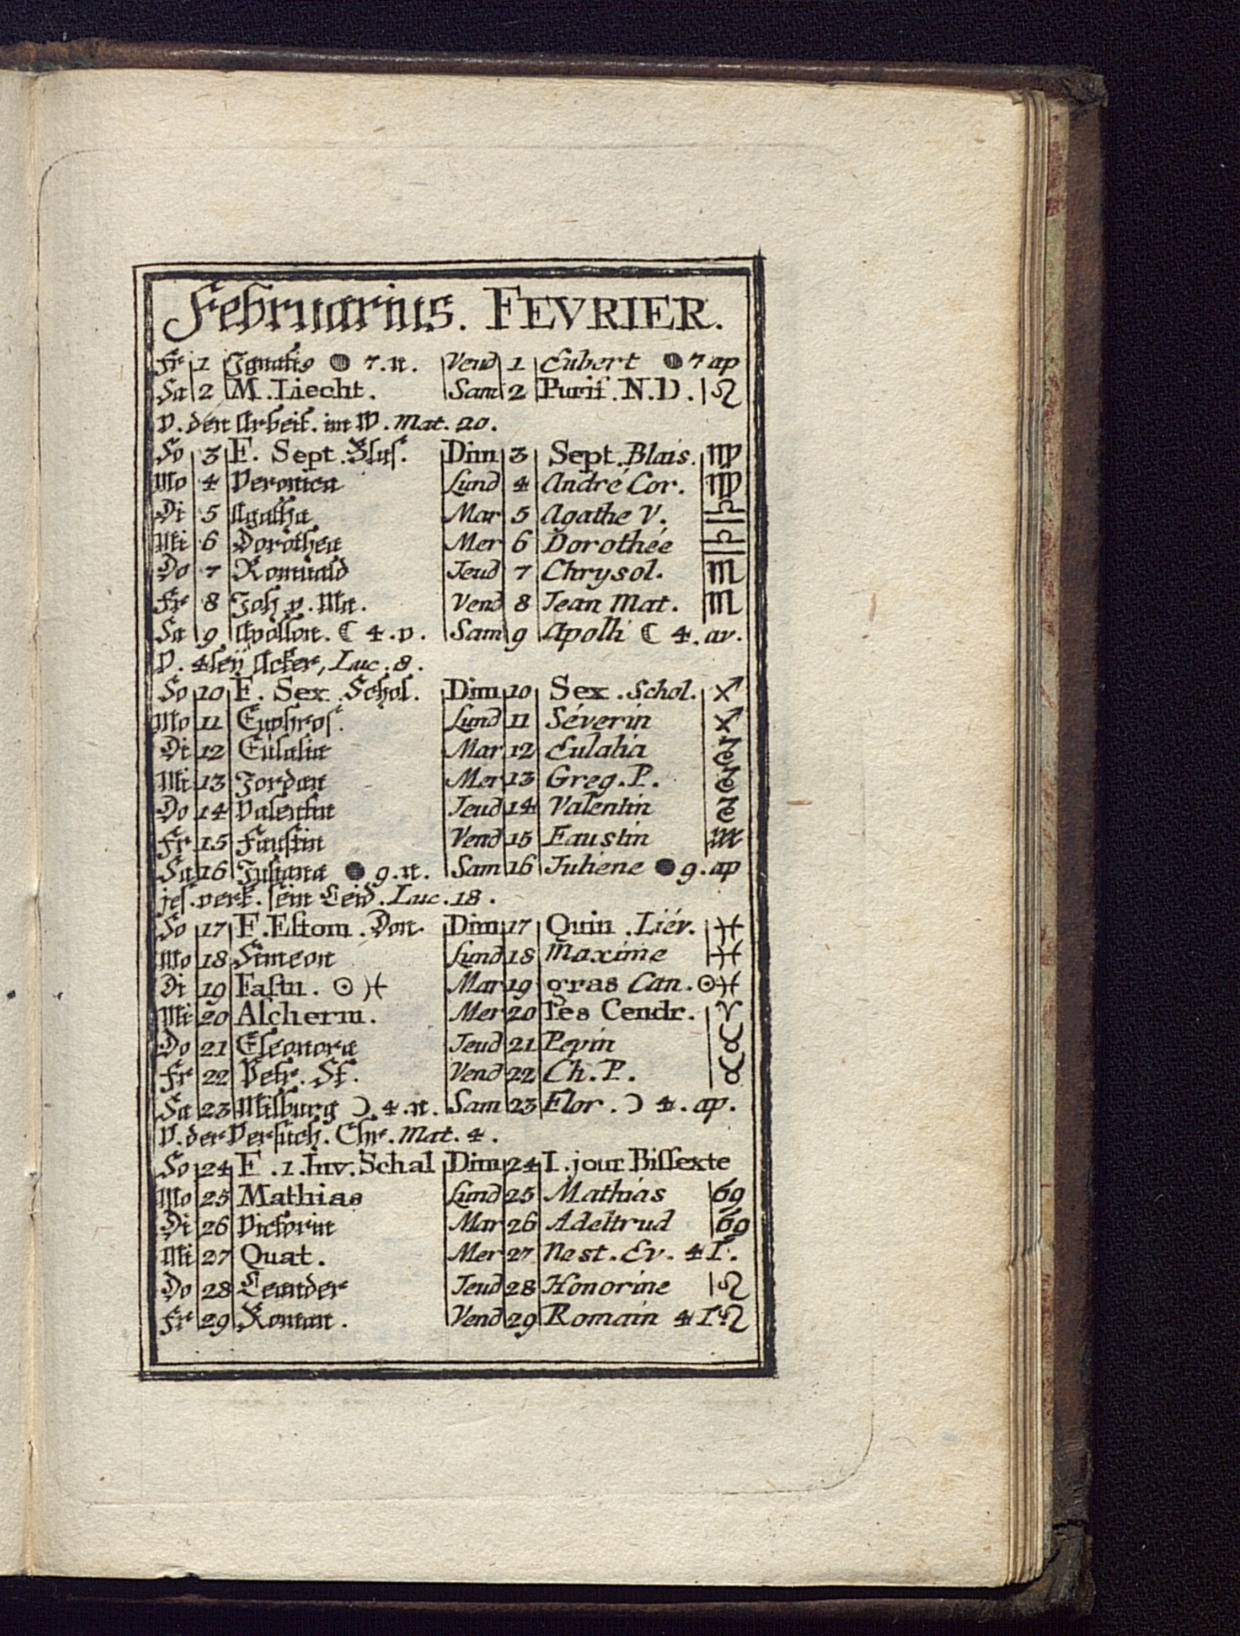 Februarius. FEVRIER.
Fr 1 Ignatis ● 7.n. Vend 1 Eubert ● 7 ap
Sa 2 M. Liecht. Sam 2 Purif. N.D. ♌
V. den Arbeit. im W. Mat. 20.
So 3 F. Sept. Blas. Dim 3 Sept. Blais. ♍
Mo 4 Veronica Lund 4 André Cor. ♍
Di 5 Agatha Mar 5 Agathe V. ♎
Mi 6 Dorothea Mer 6 Dorothée ♎
Do 7 Romuald Jeud 7 Chrysol. ♏
Fr 8 Joh v. Ma. Vend 8 Jean Mat. ♏
Sa 9 Apollon. ☾ 4.v. Sam 9 Apolli ☾ 4.av.
V. 4leÿ Acker, Luc. 8.
So 10 F. Sex. Schol. Dim 10 Sex. Schol. ♐
Mo 11 Euphros. Lund 11 Séverin ♐
Di 12 Eulalia Mar 12 Eulalia ♑
Mi 13 Jordan Mer 13 Greg. P. ♑
Do 14 Valentin Jeud 14 Valentin ♑
Fr 15 Faustin Vend 15 Faustin ♒
Sa 16 Juliana ● 9.n. Sam 16 Juliene ● 9.ap
jes. verk. sein Leid. Luc. 18.
So 17 F. Estom. Don. Dim 17 Quin. Liév. ♓
Mo 18 Simeon Lund 18 Maxime ♓
Di 19 Fastn. ☉ ♓ Mar 19 gras Can. ☉♓
Mi 20 Alcherm. Mer 20 les Cendr. ♈
Do 21 Eleonora Jeud 21 Pepin ♉
Fr 22 Petr. St. Vend 22 Ch. P. ♉
Sa 23 Milburg ☽ 4.n. Sam 23 Flor. ☽ 4.ap.
V. der Versuch. Chr. Mat. 4.
So 24 F. 1. Inv. Schal Dim 24 I. jour Bissexte
Mo 25 Mathias Lund 25 Mathias ♋
Di 26 Victorin Mar 26 Adeltrud ♋
Mi 27 Quat. Mer 27 Nest. Ev. 4 T.
Do 28 Leander Jeud 28 Honorine ♌
Fr 29 Roman. Vend 29 Romain 4 T. ♌